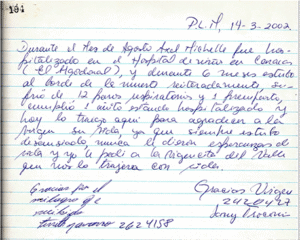 194
P.L.M, 14-3-2002.
Durante el Mes de Agosto Axel Michelle fue hos-
pitalizado en el Hospital de niños en Caracas
("El Algodonal"), y durante 6 meses estuvo
al borde de la muerte reiteradamente, su-
frio de 12 paros respiratorios y 1 preinfarto,
cumplio 1 añito estando hospitalizado y
hoy lo traigo aqui para agradecer a la
virgen su vida, ya que siempre estubo
desauciado nunca le dieron esperanzas de
vida y yo le pedi a la Virgencita del Valle
que nos lo trajera con vida.
Gracias por el
milagro y
milagro
2624158
Gracias Virgen